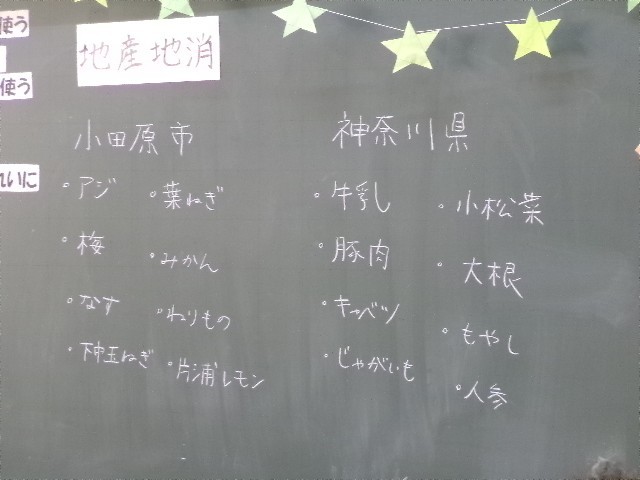 使う
使う
れいに
地産地消
小田原市
・アジ
・梅
・なす
・下中玉ねぎ
・葉ねぎ
・みかん
・ねりもの
・片浦レモン
神奈川県
・牛乳
・豚肉
・キャベツ
・じゃがいも
・小松菜
・大根
・もやし
・人参